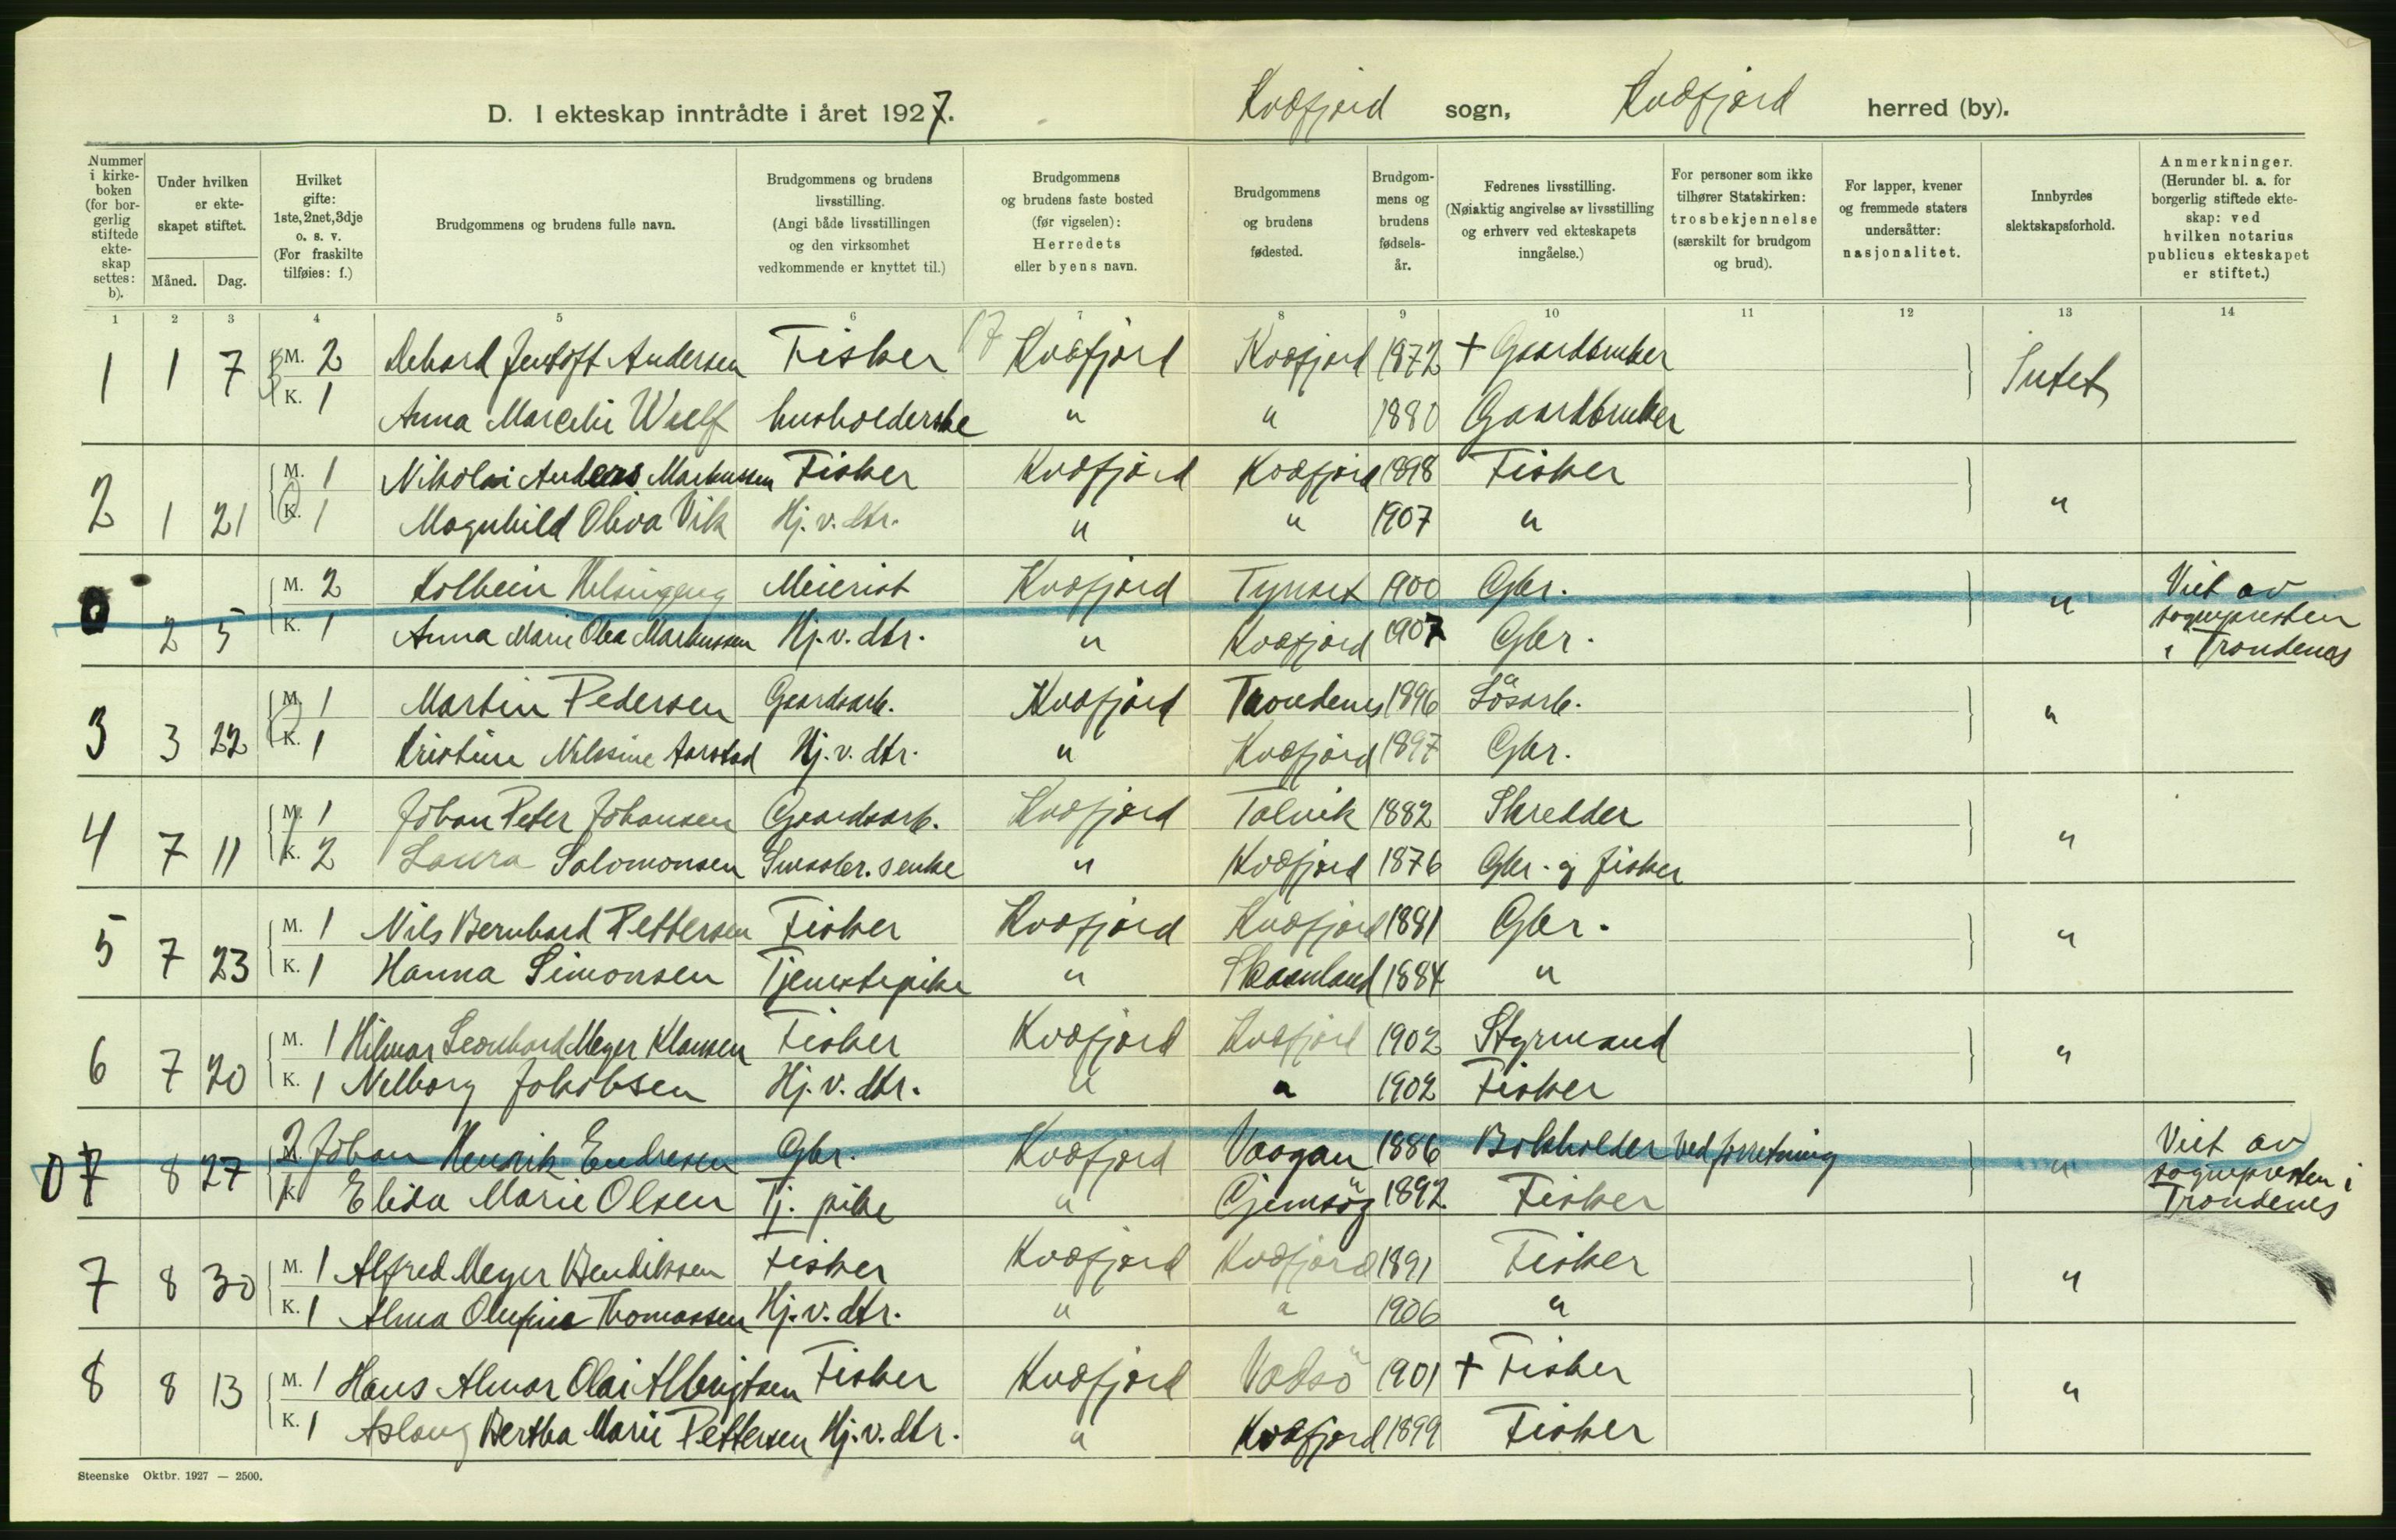 D. I ekteskap inntrådte i året 1927. Kvæfjord sogn, Kvæfjord herred (by).
Nummer i kirkeboken (for borgerlig stiftede ekteskap settes: b).
Under hvilken er ekteskapet stiftet.
Måned. Dag.
Hvilket gifte: 1ste, 2net, 3dje o. s. v. (For fraskilte tilføies: f.)
Brudgommens og brudens fulle navn.
Brudgommens og brudens livsstilling. (Angi både livsstillingen og den virksomhet vedkommende er knyttet til.)
Brudgommens og brudens faste bosted (før vigselen): Herredets eller byens navn.
Brudgommens og brudens fødested.
Brudgommens og brudens fødselsår.
Fedrenes livsstilling. (Nøiaktig angivelse av livsstilling og erhverv ved ekteskapets inngåelse.)
For personer som ikke tilhører Statskirken: trosbekjennelse (særskilt for brudgom og brud).
For lapper, kvener og fremmede staters undersåtter: nasjonalitet.
Innbyrdes slektskapsforhold.
Anmerkninger. (Herunder bl. a. for borgerlig stiftede ekteskap: ved hvilken notarius publicus ekteskapet er stiftet.)
1 2 3 4 5 6 7 8 9 10 11 12 13 14
1 1 7 M. 2 Dehard Jentoft Andersen Fisker 17 Kvæfjord Kvæfjord 1872 + Gaardbruker Intet
K. 1 Anna Marcelie Wulf husholderske " " 1880 Gaardbruker
2 1 21 M. 1 Nikolai Anders Markussen Fisker Kvæfjord Kvæfjord 1898 Fisker "
K. 1 Magnhild Oliva Vik Hj. v. dtr. " " 1907 "
0 2 5 M. 2 Kolbein Helsingeng Meierist Kvæfjord Tynset 1900 Gbr. " Viet av sognepresten i Trondenes
K. 1 Anna Marie Olea Markussen Hj. v. dtr. " Kvæfjord 1907 Gbr.
3 3 22 M. 1 Martin Pedersen Gaardsarb. Kvæfjord Trondenes 1896 Løsarb. "
K. 1 Kristine Nilssine Aarstad Hj. v. dtr. " Kvæfjord 1897 Gbr.
4 7 11 M. 1 Johan Peter Johansen Gaardsarb. Kvæfjord Talvik 1882 Skredder "
K. 2 Laura Salomonsen Smaabr. enke " Kvæfjord 1876 Gbr. og fisker
5 7 23 M. 1 Nils Bernhard Pettersen Fisker Kvæfjord Kvæfjord 1881 Gbr. "
K. 1 Hanna Simonsen Tjenestepike " Skaanland 1884 "
6 7 20 M. 1 Hilmar Leonhard Meyer Klausen Fisker Kvæfjord Kvæfjord 1902 Styrmand "
K. 1 Nelborg Jakobsen Hj. v. dtr. " " 1902 Fisker
0 7 8 27 M. 2 Johan Henrik Endresen Gbr. Kvæfjord Vaagan 1886 Bokholder ved forretning " Viet av sognepresten i Trondenes
K. 1 Elida Marie Olsen Tj. pike " Gjemsøy 1892 Fisker
7 8 30 M. 1 Alfred Meyer Bendiksen Fisker Kvæfjord Kvæfjord 1891 Fisker "
K. 1 Alma Olufine Thomassen Hj. v. dtr. " " 1906 "
8 8 13 M. 1 Hans Almar Olai Albrigtsen Fisker Kvæfjord Vadsö 1901 + Fisker "
K. 1 Aslaug Bertha Marie Pettersen Hj. v. dtr. " Kvæfjord 1899 Fisker
Steenske Oktbr. 1927 — 2500.